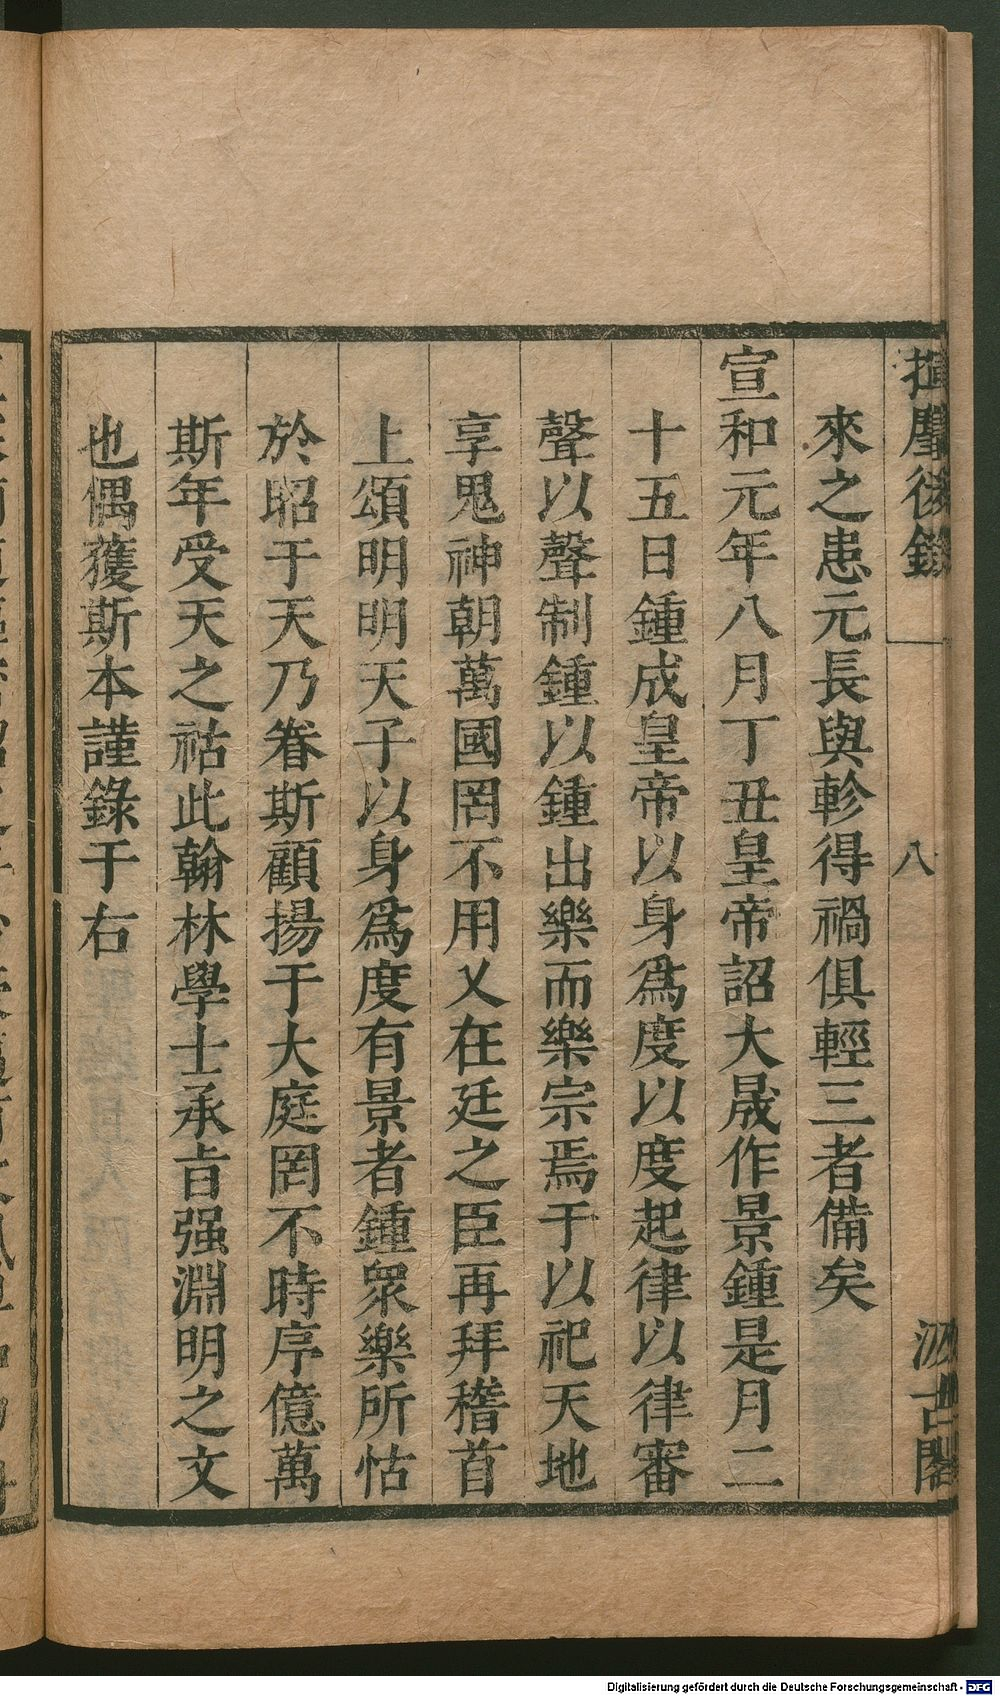 揮麈後錄
八
汲古閣
來之患元長與軫得禍俱輕三者備矣
宣和元年八月丁丑皇帝詔大晟作景鍾是月二
十五日鍾成皇帝以身爲度以度起律以律審
聲以聲制鍾以鍾出樂而樂宗焉于以祀天地
享鬼神朝萬國罔不用乂在廷之臣再拜稽首
上頌明明天子以身爲度有景者鍾眾樂所怙
於昭于天乃眷斯顧揚于大庭罔不時序億萬
斯年受天之祜此翰林學士承旨强淵明之文
也偶獲斯本謹錄于右
Digitalisierung gefördert durch die Deutsche Forschungsgemeinschaft - DFG